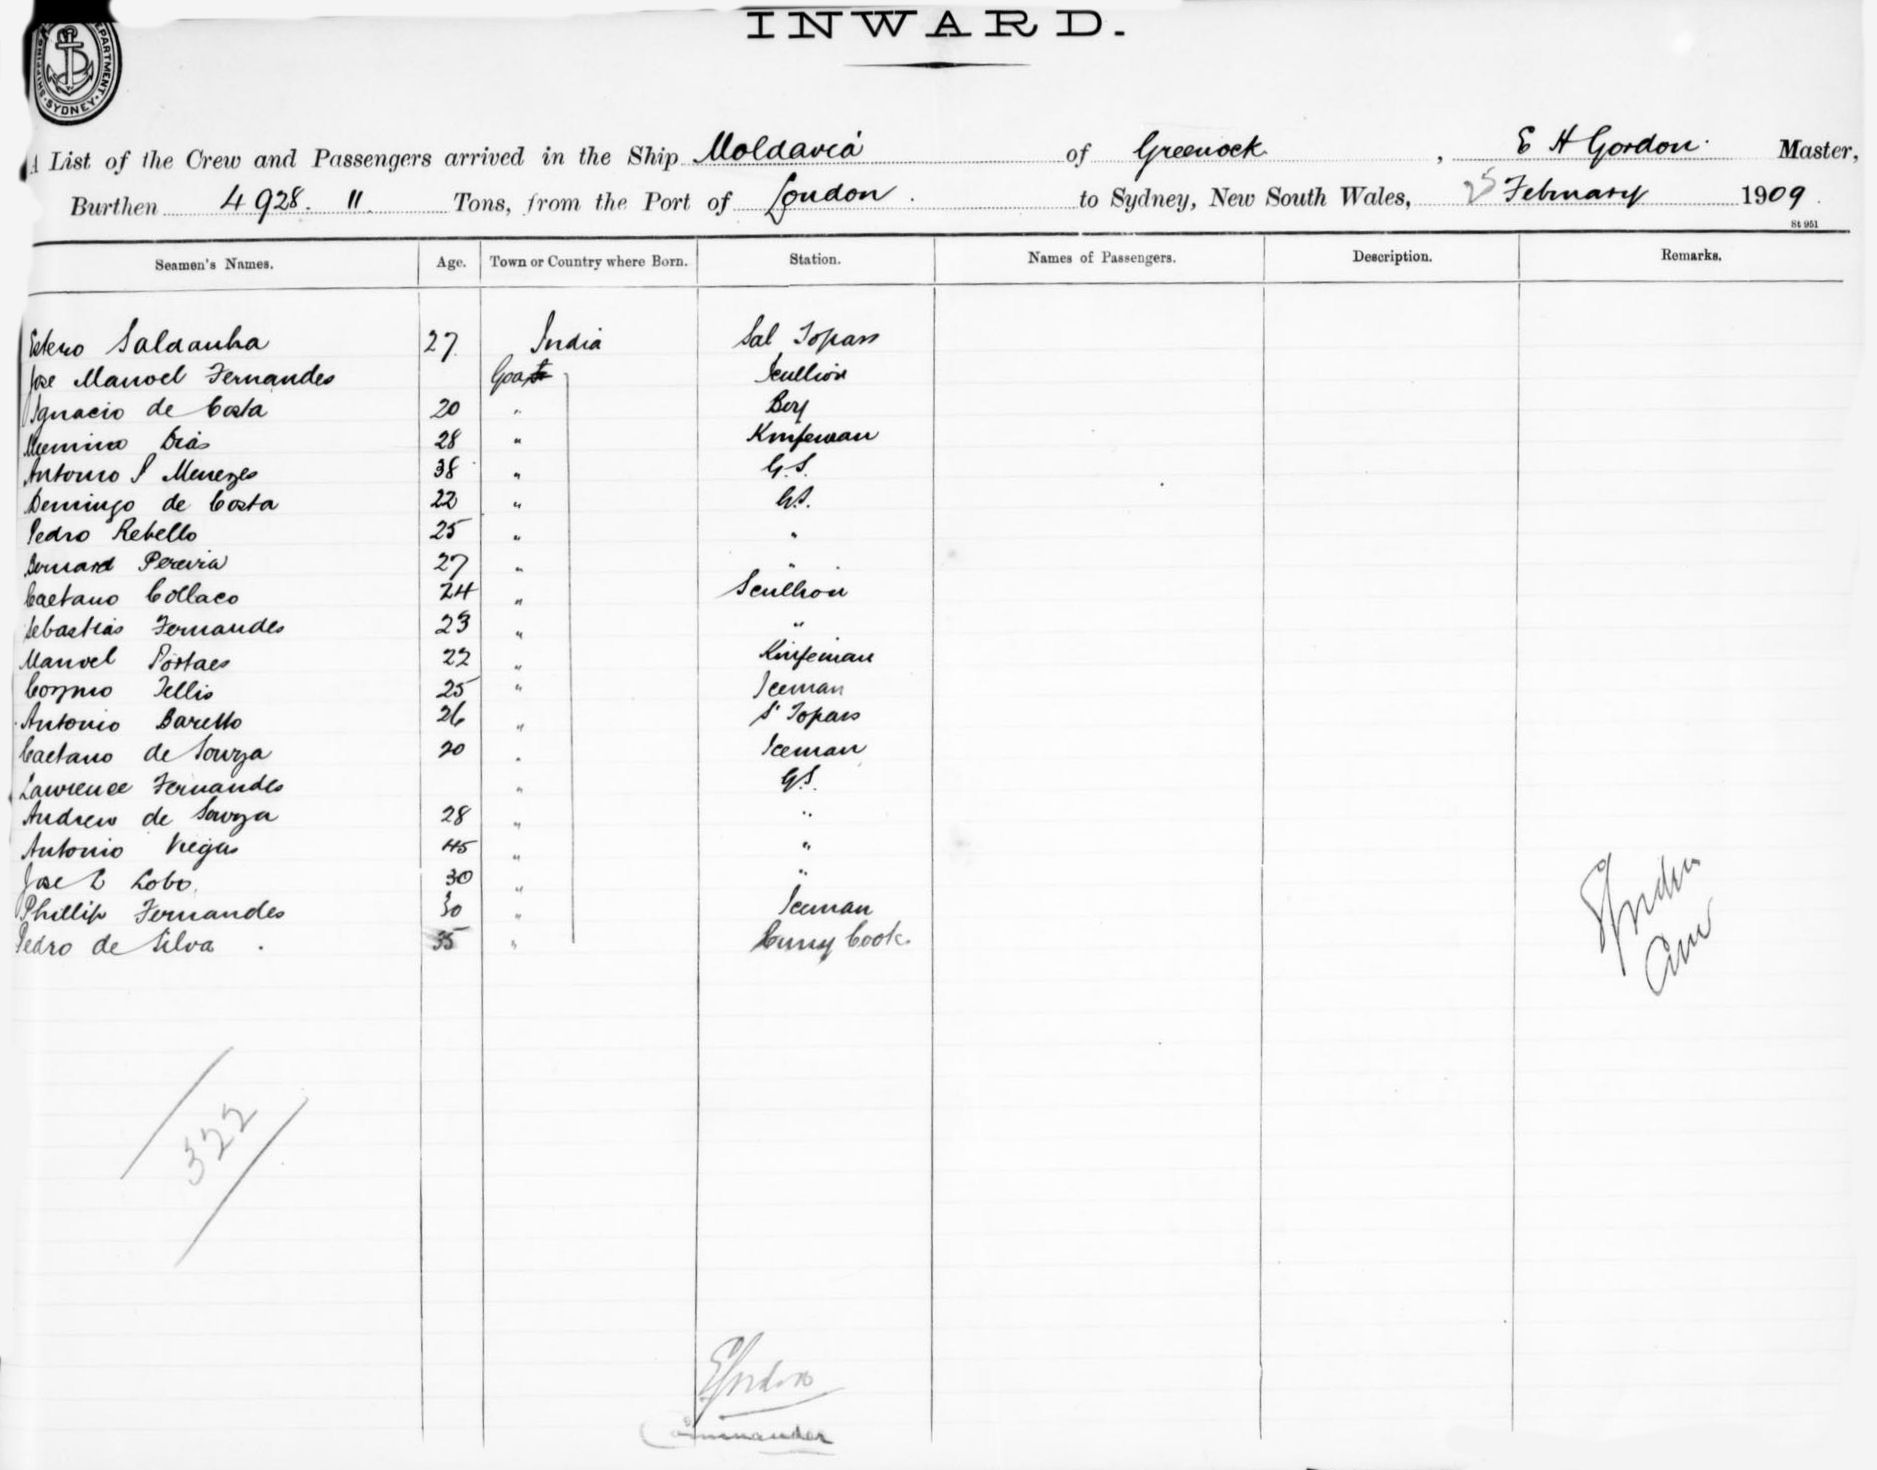 INWARD.
SHIPPING DEPARTMENT SYDNEY
A List of the Crew and Passengers arrived in the Ship Moldavia of Greenock, E H Gordon. Master,
Burthen 4928. 11. Tons, from the Port of London. to Sydney, New South Wales, 25 February 1909.
St 951
Seamen's Names. Age. Town or Country where Born. Station. Names of Passengers. Description. Remarks.
Saldanha 27. India Sal Topass
Jose Manoel Fernandes Goa Scullion
Ignacio de Costa 20 " Boy
Dias 28 "
Antonio S Menezes 38 " G.S.
Domingo de Costa 22 " G.S.
Pedro Rebello 25 " "
Bernard Pereira 27 " "
Caetano Collaco 24 " Scullion
Sebastias Fernandes 23 " "
Manoel Portaes 22 "
Cozmo Tellis 25 " Iceman
Antonio Baretto 26 " S' Topass
Caetano de Souza 20 " Iceman
Lawrence Fernandes " G.S.
Andrew de Souza 28 " "
Antonio Viegas 45 " "
Jose Lobo 30 " "
Phillip Fernandes 30 " Iceman
Pedro de Silva. 35 " Curry Cook.
322
Commander